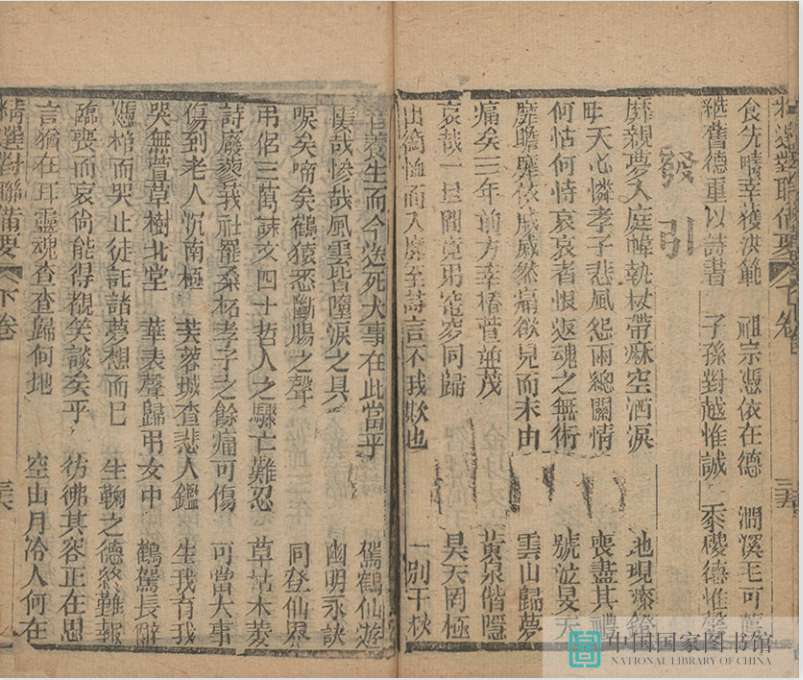 食先疇幸獲洪範　祖宗憑依在德　澗溪毛可薦
舊德重以詩書　子孫對越惟誠　黍稷德惟馨
發引
靡親夢入庭幃執杖帶麻空洒淚　地現
昊天心憐孝子悲風怨雨總關情　喪盡其禮
何怙何恃哀哀者恨返魂之無術　號泣旻天
靡瞻靡依戚戚然痛欲見而未由　雲山歸夢
痛矣三年前方幸椿萱並茂　黃泉偕隱
哀哉一旦間竟弔窀穸同歸　昊天罔極
出銜恤而入靡至詩言不我欺也　一別千秋
養生而今送死大事在此當乎　駕鶴仙遊
悽哉慘哉風雲皆墮淚之具　幽明永訣
唳矣啼矣鶴猿悉斷腸之聲　同登仙界
弔侶三萬誄文四十哲人之驟亡難忍　草枯木萎
詩廢蓼莪社罷桑柘孝子之餘痛可傷　可當大事
傷到老人沉南極　芙蓉城杳悲人鑑　生我育我
哭無萱草樹北堂　華表聲歸弔女中　鶴駕長辭
憑棺而哭止徒託諸夢想而已　生鞠之德終難報
臨喪而哀尚能得覩笑談矣乎　彷彿其容正在思
言猶在耳靈魂杳杳歸何地　空山月冷人何在
精選對聯備要　下卷　三六
中国国家图书馆
NATIONAL LIBRARY OF CHINA